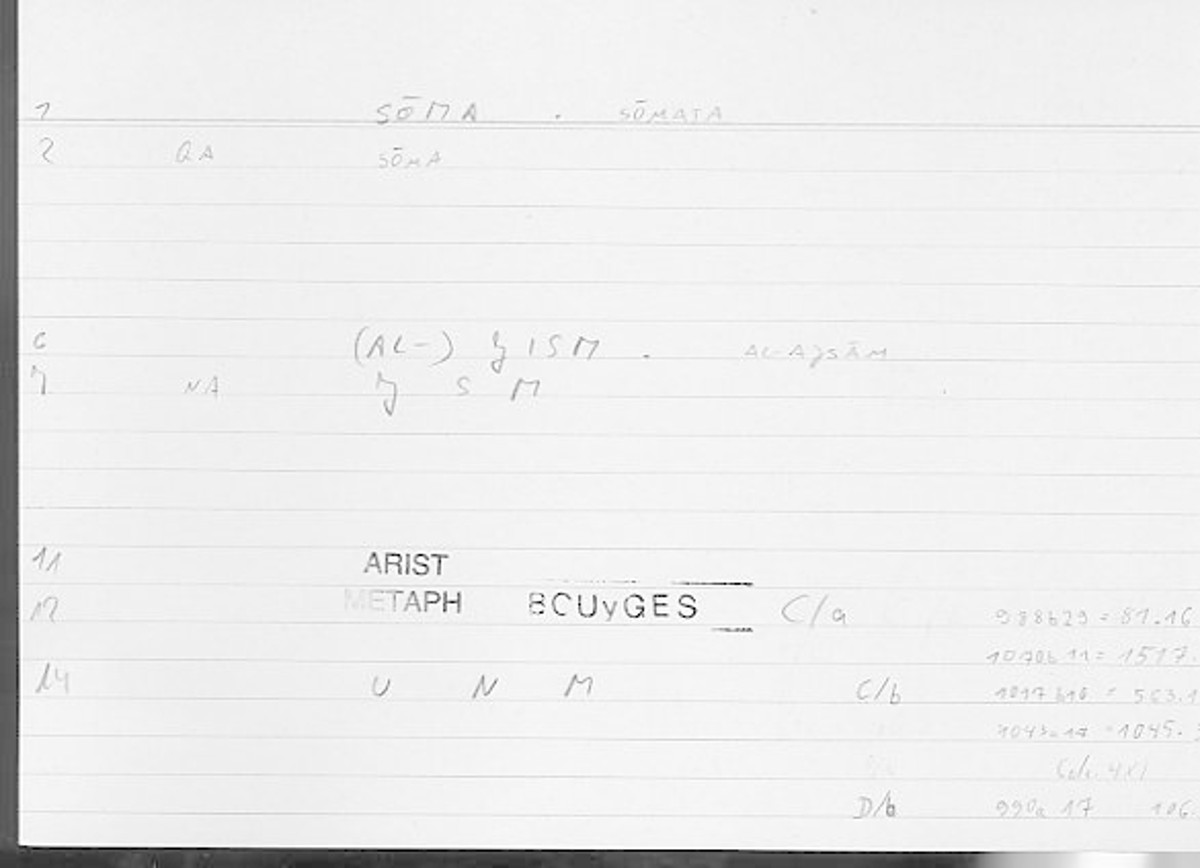 1 SŌMA . SŌMATA
2 QA SŌMA
6 (AL-) ǦISM . AL-AǦSĀM
7 NA Ǧ S M
11 ARIST
12 METAPH BOUyGES C/a 988b29 = 81.16
1070b11 = 1517.
14 U N M C/b 1017b10 = 563.1
1043a17 = 1045.
4x!
D/b 990a 17 106.